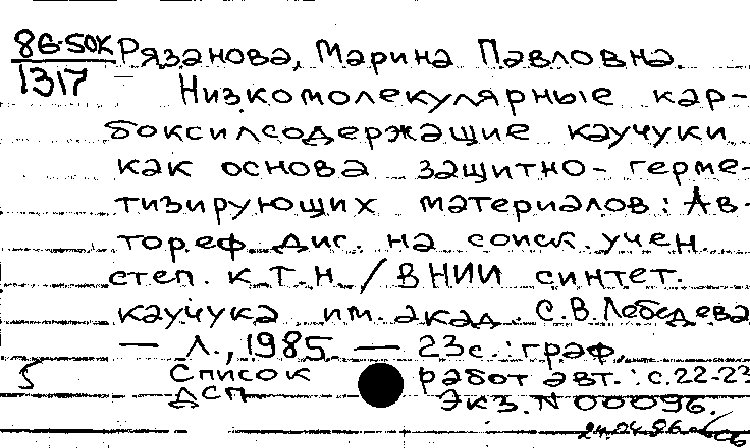 86-50К Рязанова, Марина Павловна.
1317
Низкомолекулярные кар-
боксилсодержащие каучуки
как основа защитно-герме-
тизирующих материалов: Ав-
тореф. дис. на соиск. учен.
степ. к.т.н. / ВНИИ синтет.
каучука им. акад. С.В.Лебедева
— Л., 1985. — 23с.: граф.
5 Список работ авт.: с.22-23
ДСП Экз. N 00096.
24.04.86